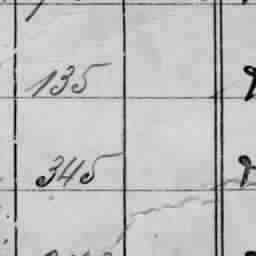 135
345